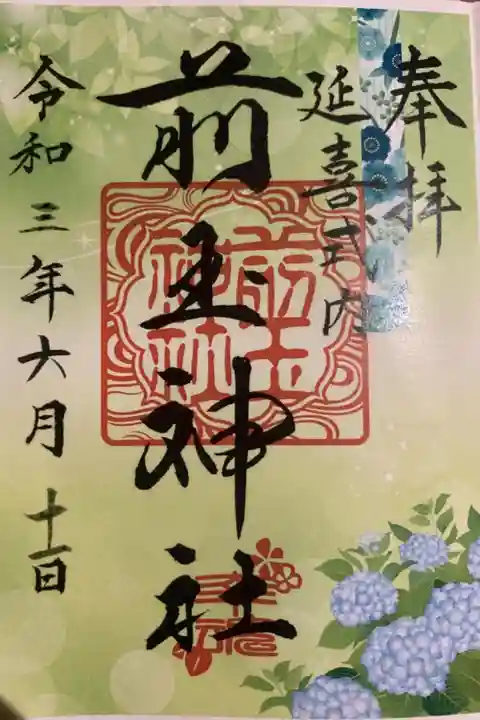 奉拝
延喜式内
前玉神社
前玉
神社
令和三年六月十一日